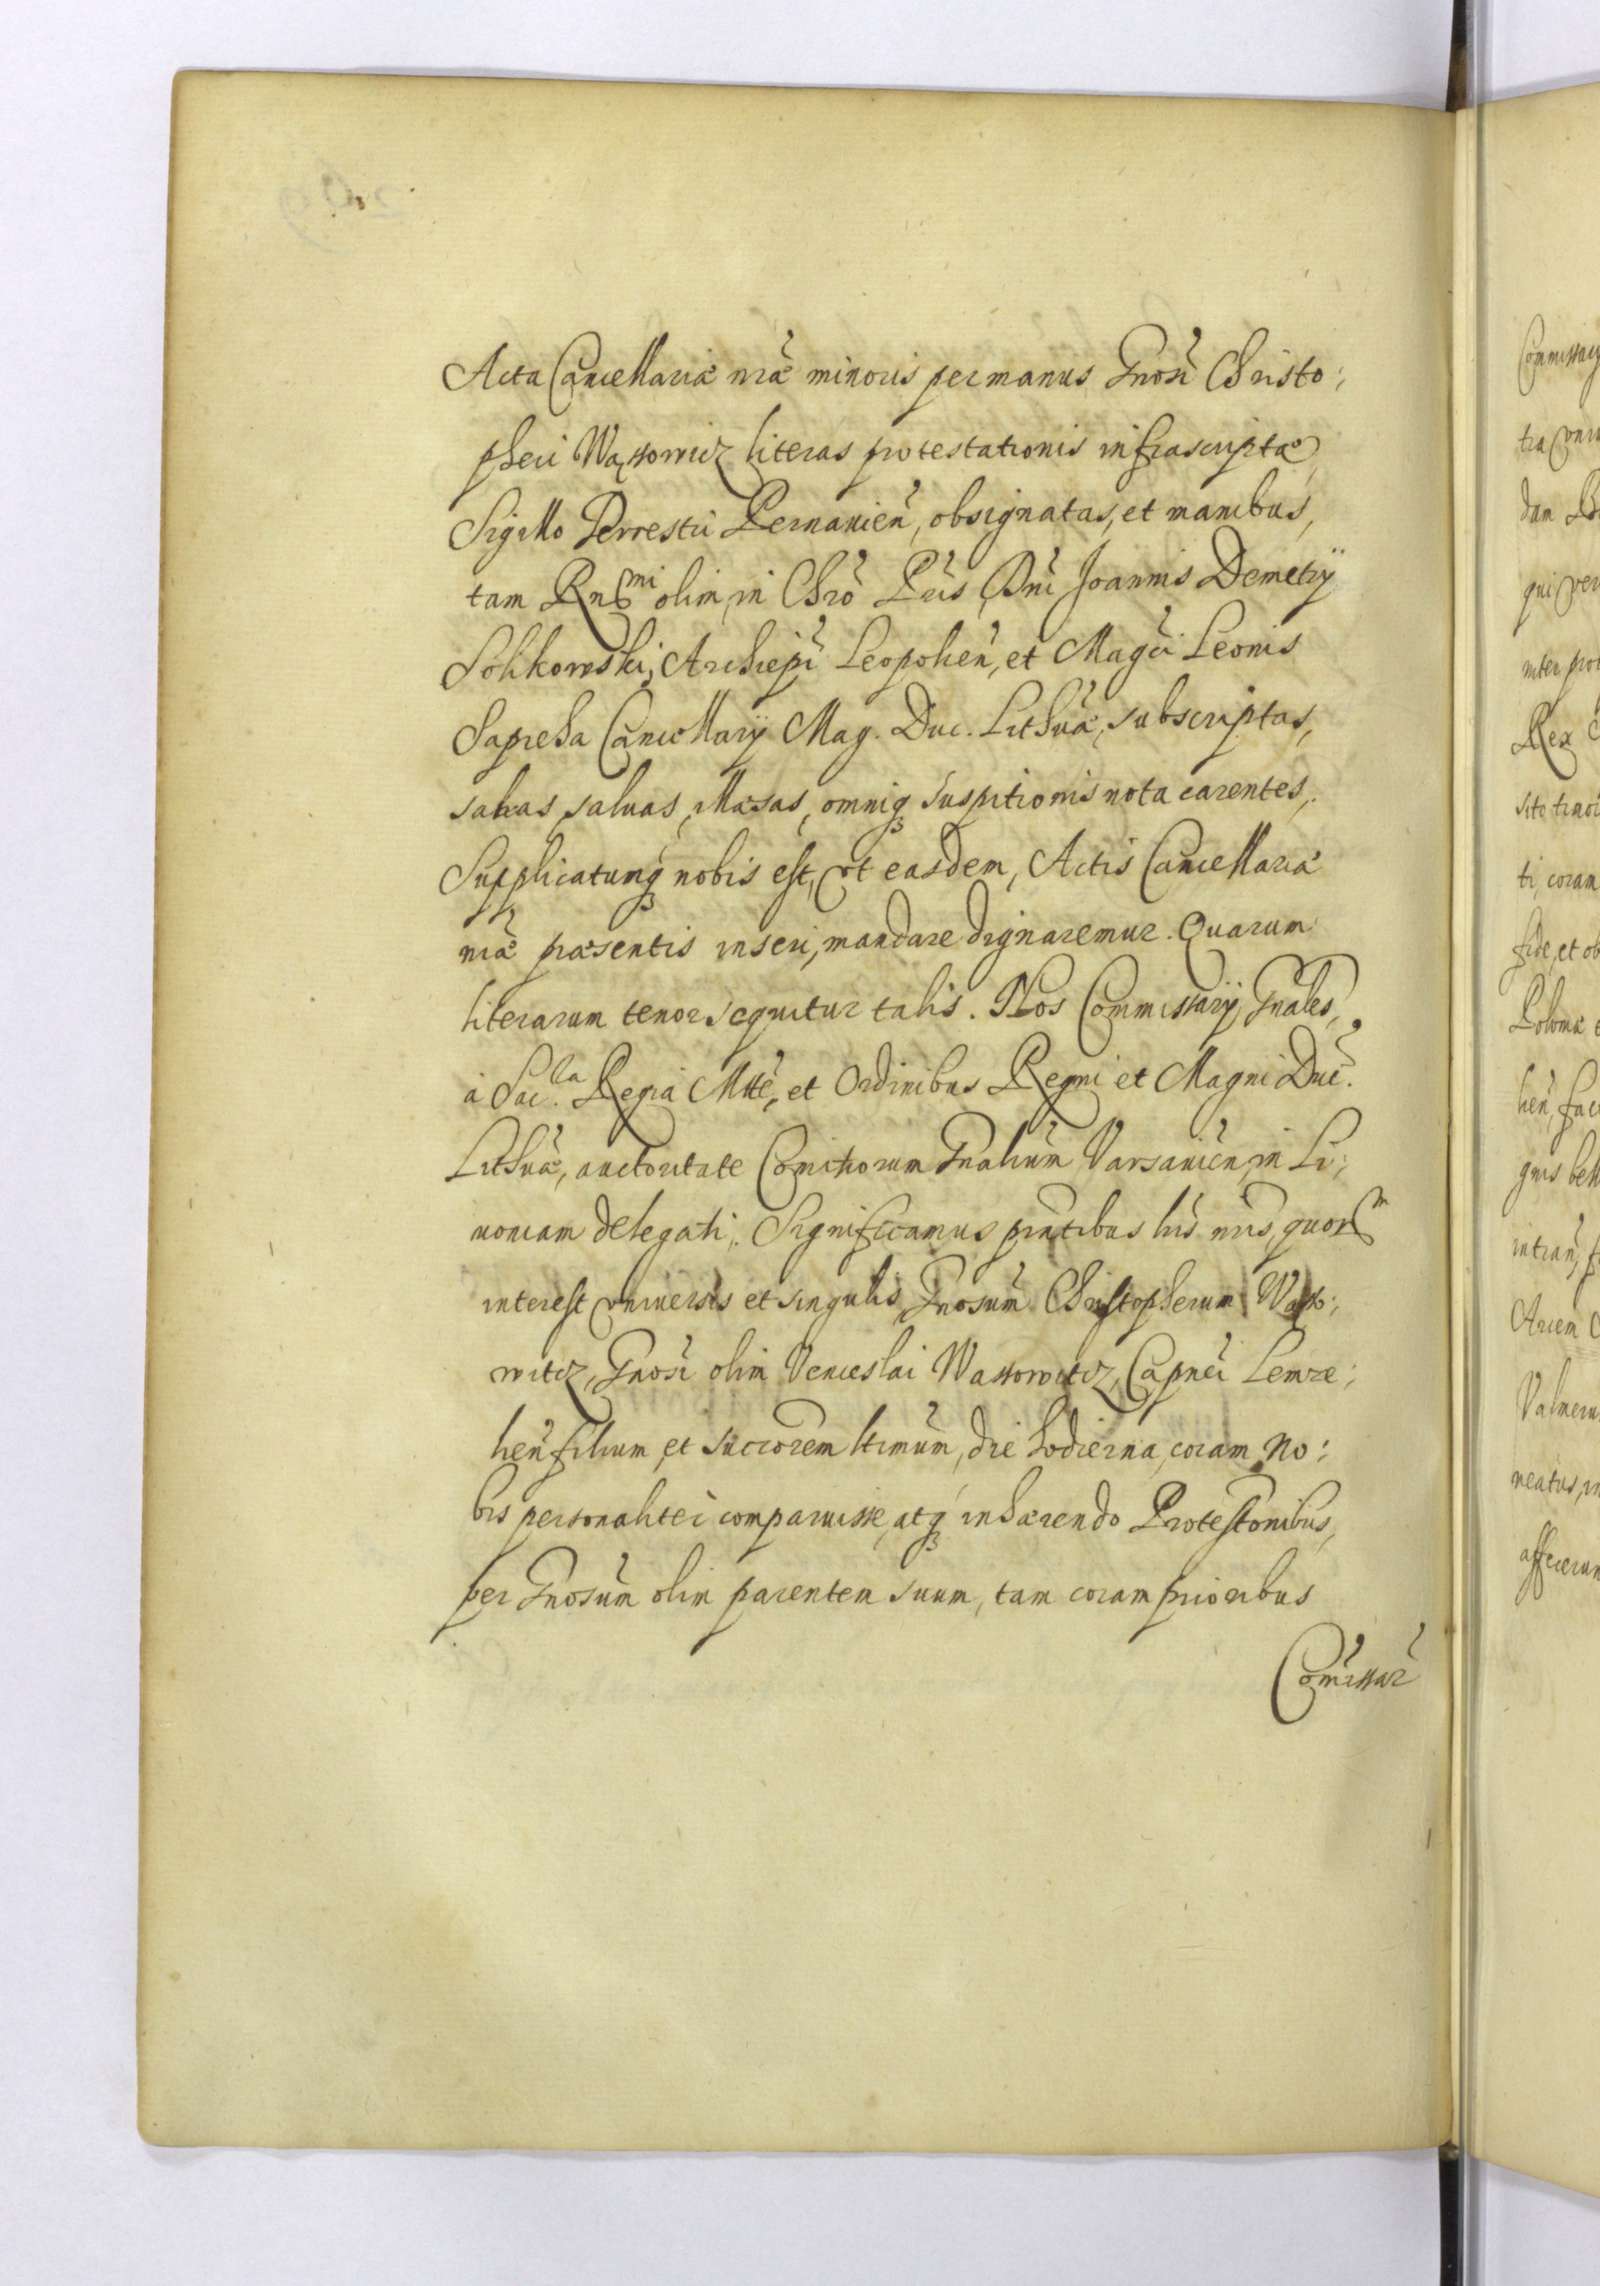 Acta Cancellariæ nr̃æ minoris per manus Gnosi Christo:
pheri Wassowicz literas protestationis infrascriptæ,
Sigillo Terrestri Pernauien̄, obsignatas, et manibus,
tam Rndmi olim, in Chrō Pr̄is Dn̄i Joannis Demetrij
Solikowski, Archiepī Leopolien̄, et Magci Leonis
Sapieha Cancellarij Mag. Duc. Lithuā, subscriptas,
sal̃as, saluas, illæsas, omniq; suspitionis nota carentes,
Supplicatumq; nobis est, vt easdem, Actis Cancellariæ
nr̃æ præsentis inseri, mandare dignaremur. Quarum
literarum tenor sequitur talis. Nos Commissarij Gn̄ales,
à Sac.ra Regia Mtte, et Ordinibus Regni et Magni Duc̄.
Lithuā, auctoritate Comitiorum Gnaliūm Varsauien̄, in Li:
uoniam delegati. Significamus pn̄tibus lr̄is nr̄is, quorm
interest vniuersis et singulis, Gnosum Christopherum Wasso:
witcz, Gnosi olim Venceslai Wassowitcz, Capnei Lemze:
lien̄ filium, et succrorem ltimūm, die hodierna, coram No:
bis personaliter comparuisse, atq; inhærendo Protestōnibus,
per Gnosum olim parentem suum, tam coram prioribus
Com̄issar̄
Commissarij
dam
Rex
ti, coram
fide, et ob
Arcem